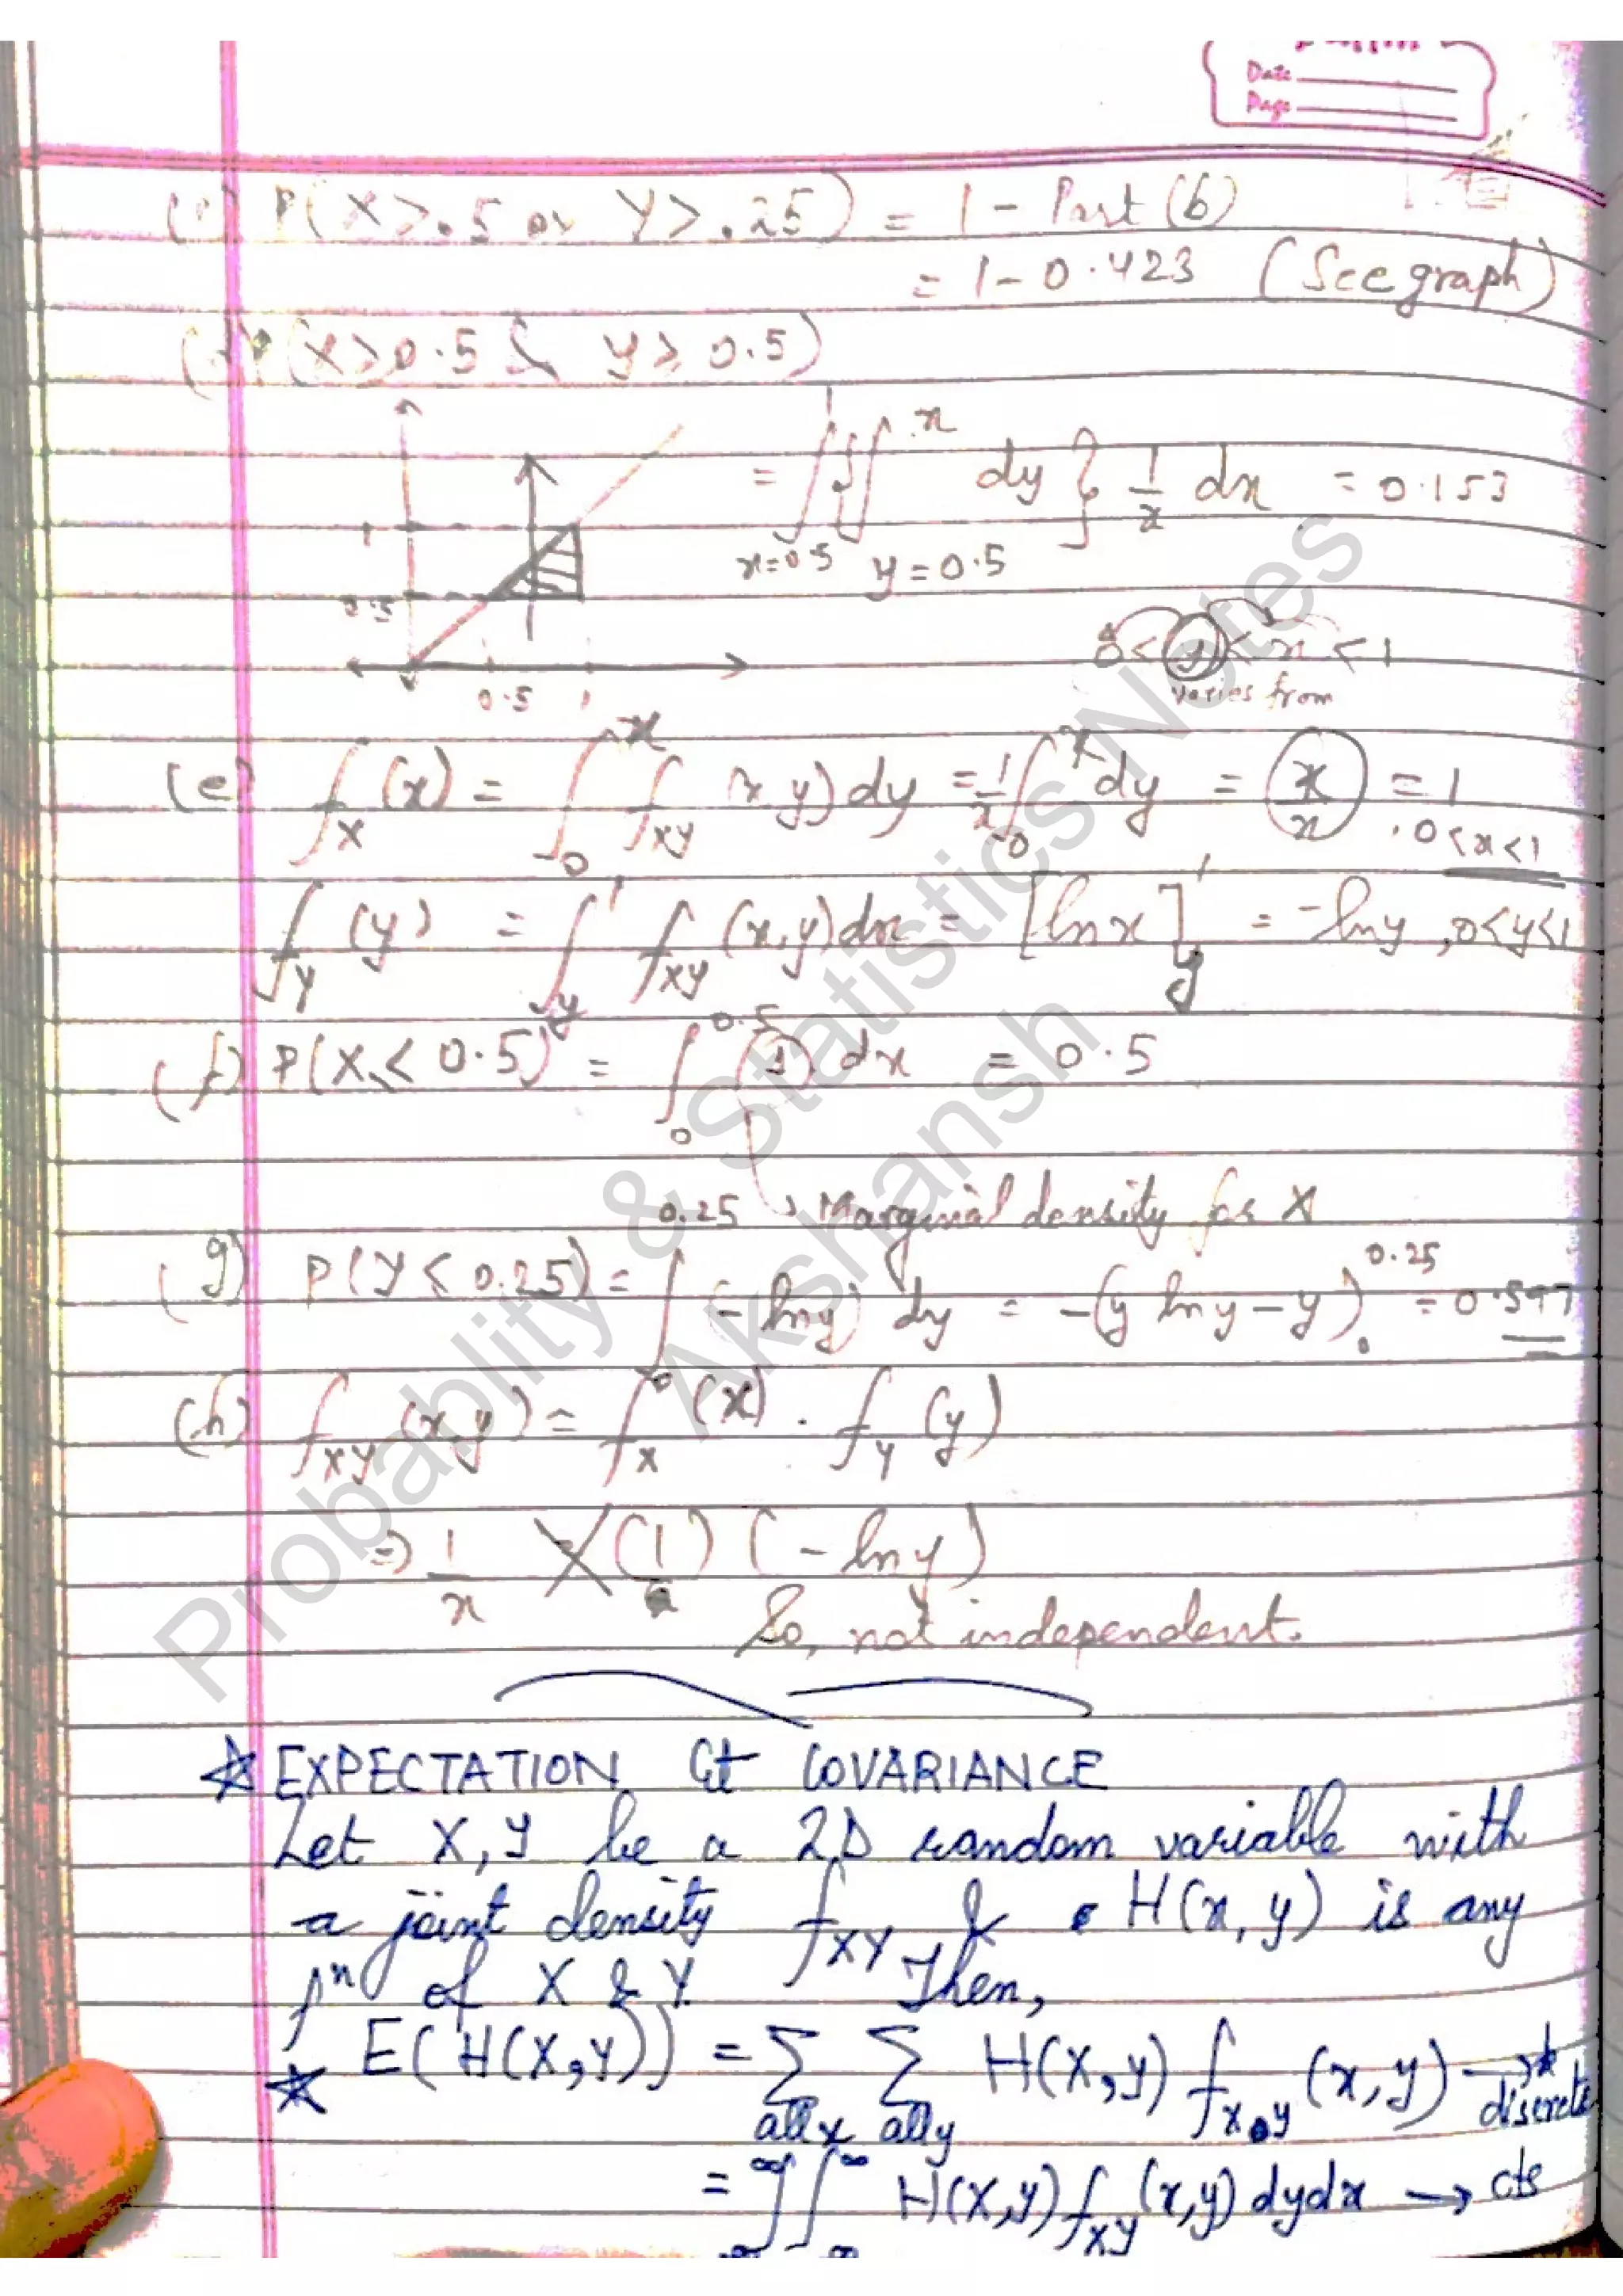 Date
Page
P(X>.5 or Y>.25) = 1 - Part (b)
= 1 - 0.423 (See graph)
P(X>0.5 & Y>0.5)
= ∫{∫ dy} 1/x dx = 0.153
1
x
x=0.5 y=0.5
1
0.5
0.5 1
0<y<x<1
varies from
(e) f_X(x) = ∫_0^x f_XY(x,y)dy = 1/x ∫_0^x dy = x/x = 1 , 0<x<1
f_Y(y) = ∫_y^1 f_XY(x,y)dx = [ln x]_y^1 = -ln y, 0<y<1
(f) P(X<0.5) = ∫_0^0.5 (1) dx = 0.5
Marginal density for X
(g) P(Y<0.25) = ∫_0^0.25 (-ln y) dy = -(y ln y - y)_0^0.25 = 0.597
(h) f_XY(x,y) = f_X(x) . f_Y(y)
⇒ 1/x (1) (-ln y)
So, not independent.
☆ EXPECTATION & COVARIANCE
Let X, Y be a 2D random variable with
a joint density f_XY & H(x,y) is any
fⁿ of X & Y. Then,
☆ E(H(X,Y)) = Σ_all x Σ_all y H(X,y) f_X,y(x,y) → ☆ discrete
= ∫_-∞^∞ ∫_-∞^∞ H(X,y) f_XY(x,y) dydx → cts
Probablity & Statistics Notes
Akshansh